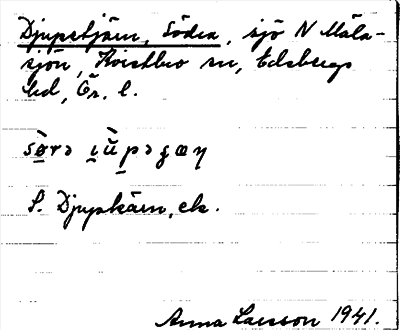 Djupetjärn, Södra, sjö N Mäla-
sjön, Kvistbro sn, Edsbergs
hd, Ör. l.
S. Djupkärn, ek.
Anna Larsson 1941.